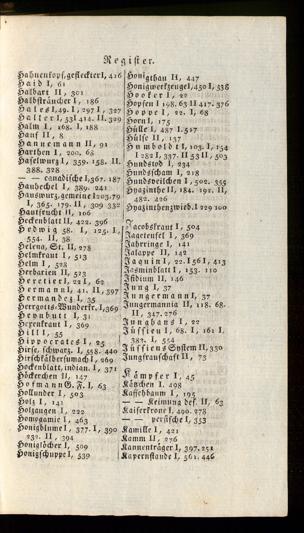 Register.
Hahnenkopf, gefleckter I, 416
Haid I, 61
Halbart II, 301
Halbsträucher I, 186
Hales I, 49. I, 297 I, 327
Haller I, 531 414. II. 329
Halm I, 168. I, 188
Hanf II, 8
Hannemann II, 91
Harthen I, 200. 68
Haselwurz I, 359. 158. II.
388. 328
— — canadische I, 367. 187
Hauhechel I, 389. 241
Hauswurz, gemeine I 203. 79
I, 365. 179. II, 309 332
Hautfrucht II, 106
Heckenblatt II, 422. 396
Hedwig 58. I, 125. I,
554. II, 38
Helena, St. II, 278
Helmkraut I, 513
Helm I, 328
Herbarien II, 523
Heretier I, 22 I, 62
Hermann I, 41. II, 397
Hernandez I, 35
Herrgotts-Wunderkr. I, 369
Heynbult I, 31
Hexenkraut I, 369
Hill I, 55
Hippocrates I, 25
Hirse, schwarz. I, 558. 440
Hirschfälberfumach I, 269
Hockenblatt, indian. I, 371
Höckerchen II, 147
Hofmann G. F. I, 63
Hollunder I, 503
Holz I, 141
Holzaugen I, 222
Homogamie I, 463
Honigblume I, 377. I, 390
232. II, 394
Honiglöcher I, 509
Honigschuppe I, 539
Honigthau II, 447
Honigwerkzeuge I, 430 I, 538
Hooker I, 22
Hopfen I 198. 63 II 417. 376
Hoppe I, 22. I, 68
Horn I, 175
Hülle I, 487 I. 517
Hülse II, 137
Humboldt I, 103. I, 154
I 282 I, 337. II 53 II, 503
Hundstod I, 234
Hundscham I, 218
Hundsveilchen I, 502. 355
Hyazinthe II, 184. 191. II,
482. 426
Hyazinthenzwieb. I 229 100
Jacobskraut I, 504
Jageteufel I, 369
Jahringe I, 141
Jalappe II, 142
Jaquin I, 22. 156 I, 413
Jasminblatt I, 153. 110
Jfidium II, 146
Jung I, 37
Jungermann I, 37
Jungermannia II, 118. 68.
II, 347. 276
Junghans I, 22
Jüssieu I, 68. I, 161 I,
382. I, 554
Jüssiens System II, 330
Jungfrauschaft II, 73
Kämpfer I, 45
Kätzchen I. 498
Kaffehbaum I, 195
— — Keimung des. II, 63
Kaiserkrone I, 490. 278
— — persische I, 553
Kamille I, 421
Kamm II, 276
Kannenträger I, 397. 251
Kapernstaude I, 561. 446